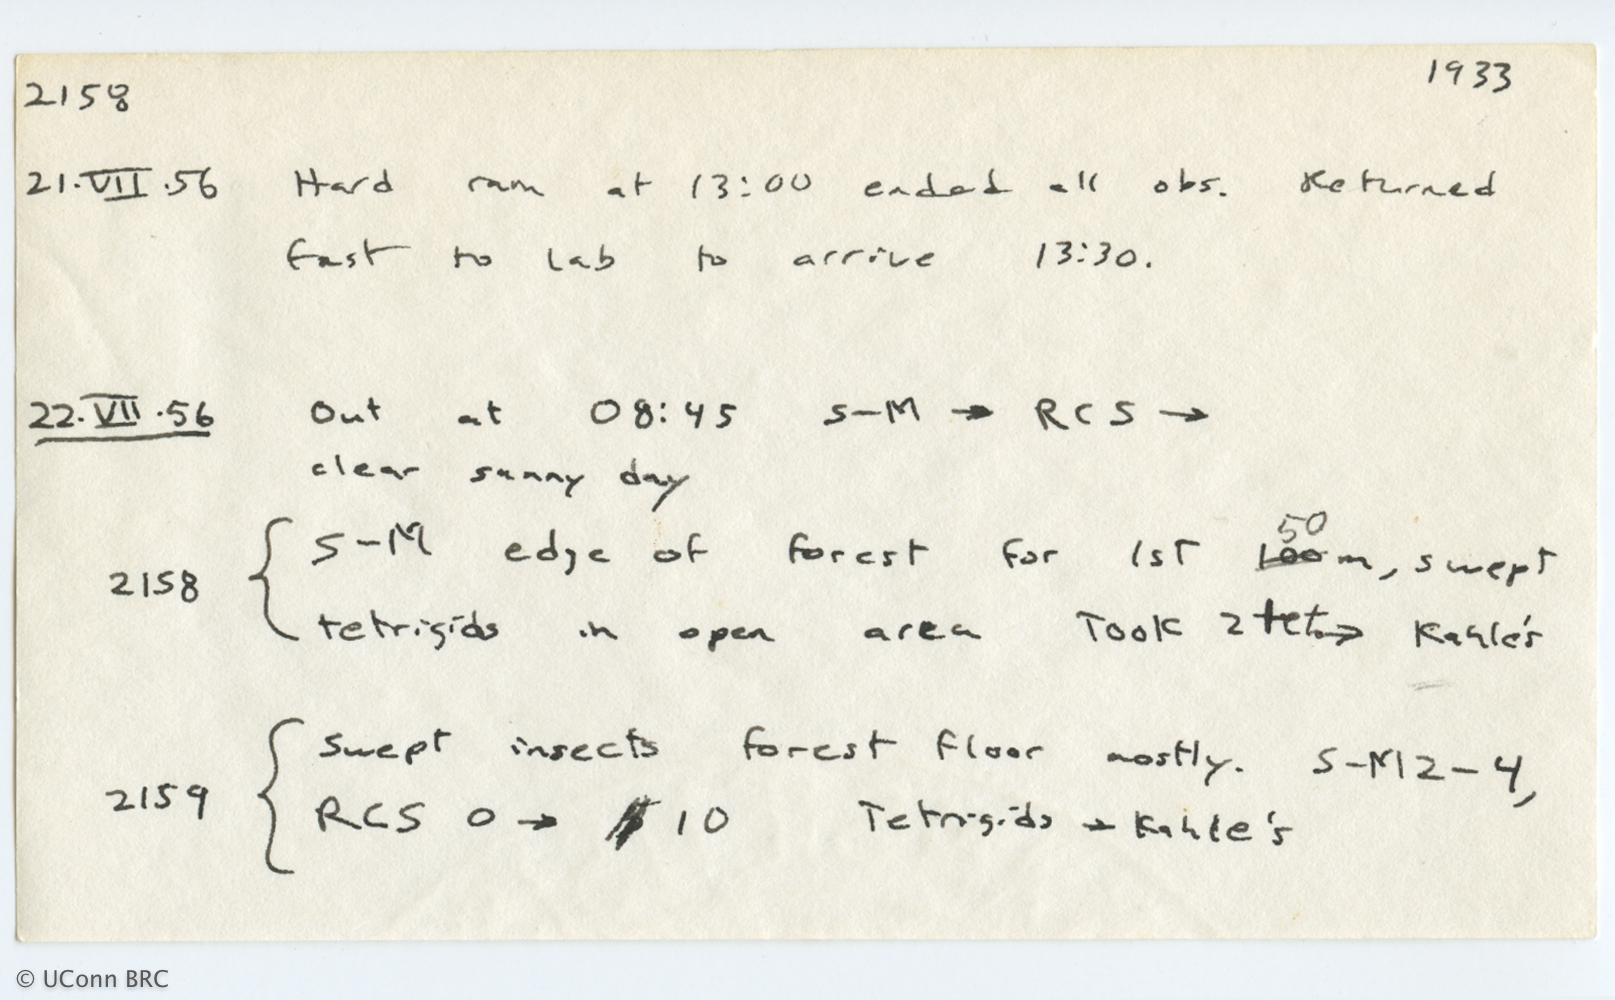 2158 1933
21.VII.56 Hard rain at 13:00 ended all obs. Returned
fast to lab to arrive 13:30.
22.VII.56 Out at 08:45 S-M → RCS →
clear sunny day
50
2158 { S-M edge of forest for 1st 100m, swept
tetrigids in open area Took 2 tet. → Kahle's
2159 { swept insects forest floor mostly. S-M 2-4,
RCS 0 → 10 Tetrigids → Kahle's
© UConn BRC